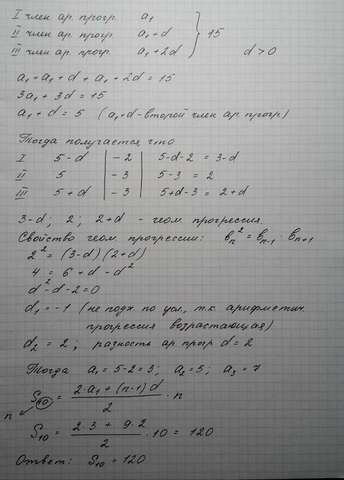 I член ар. прогр. a₁
II член ар. прогр. a₁+d } 15
III член ар. прогр. a₁+2d d>0
a₁+a₁+d+a₁+2d=15
3a₁+3d=15
a₁+d=5 (a₁+d-второй член ар. прогр)
Тогда получается что
I 5-d | -2 | 5-d-2=3-d
II 5 | -3 | 5-3=2
III 5+d | -3 | 5+d-3=2+d
3-d; 2; 2+d - геом. прогрессия.
Свойство геом. прогрессии: bₙ²=bₙ₋₁·bₙ₊₁
2²=(3-d)(2+d)
4=6+d-d²
d²-d-2=0
d₁=-1 (не подх. по усл, т.к арифметич.
прогрессия возрастающая)
d₂=2; разность ар. прогр d=2
Тогда a₁=5-2=3; a₂=5; a₃=7
n S₁₀ = (2·a₁+(n-1)d)/2 · n
S₁₀ = (2·3+9·2)/2 · 10 = 120
Ответ: S₁₀=120